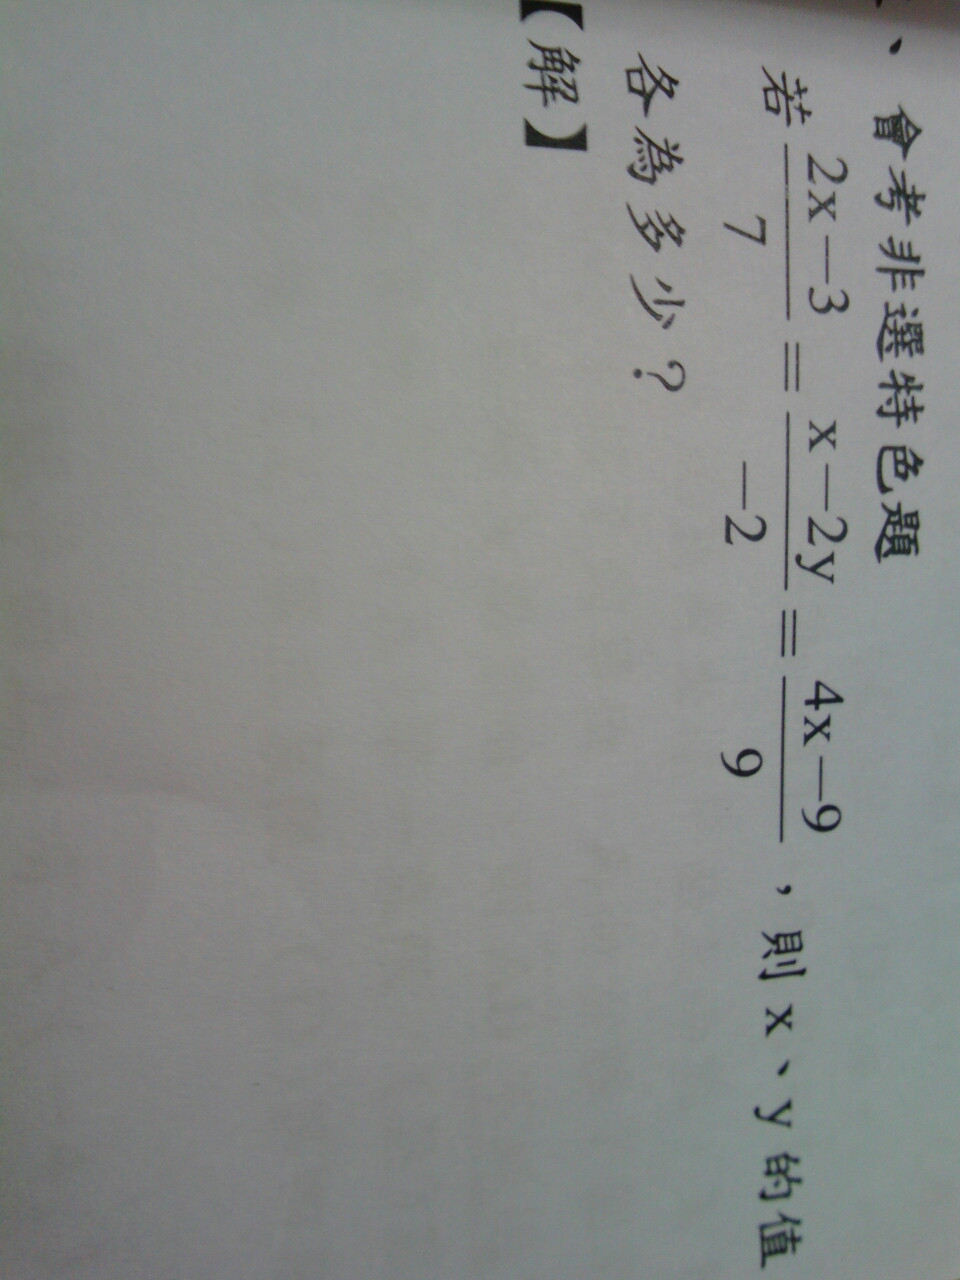 、會考非選特色題
若 \frac{2x-3}{7} = \frac{x-2y}{-2} = \frac{4x-9}{9} ,則 x、y 的值
各為多少?
【解】